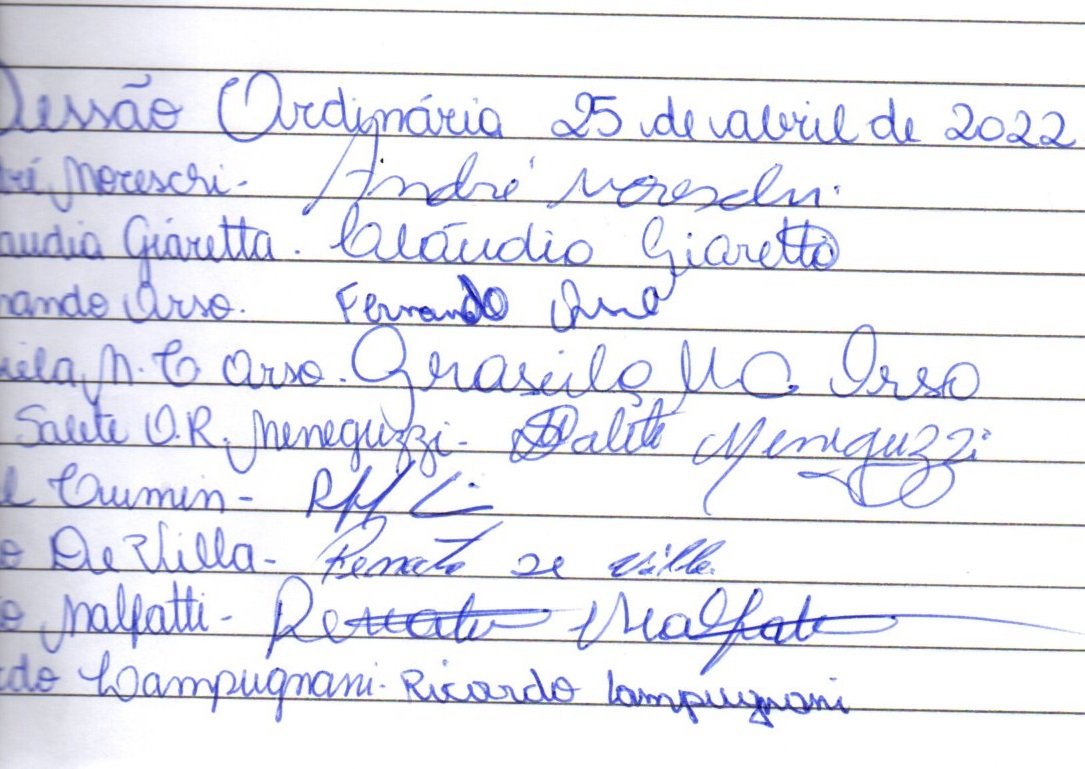 Sessão Ordinária 25 de abril de 2022
dré Moreschi - André Moreschi
audia Giaretta. Claúdia Giaretta
nando Orso. Fernando Orso
iela M. C Orso. Grasiela M C. Orso
Salete O.R. Meneguzzi - Salete Meneguzzi
l Crumin -
o De Villa - Renato De Villa
o Malfatti - Renato Malfatti
do Lampugnani - Ricardo Lampugnani